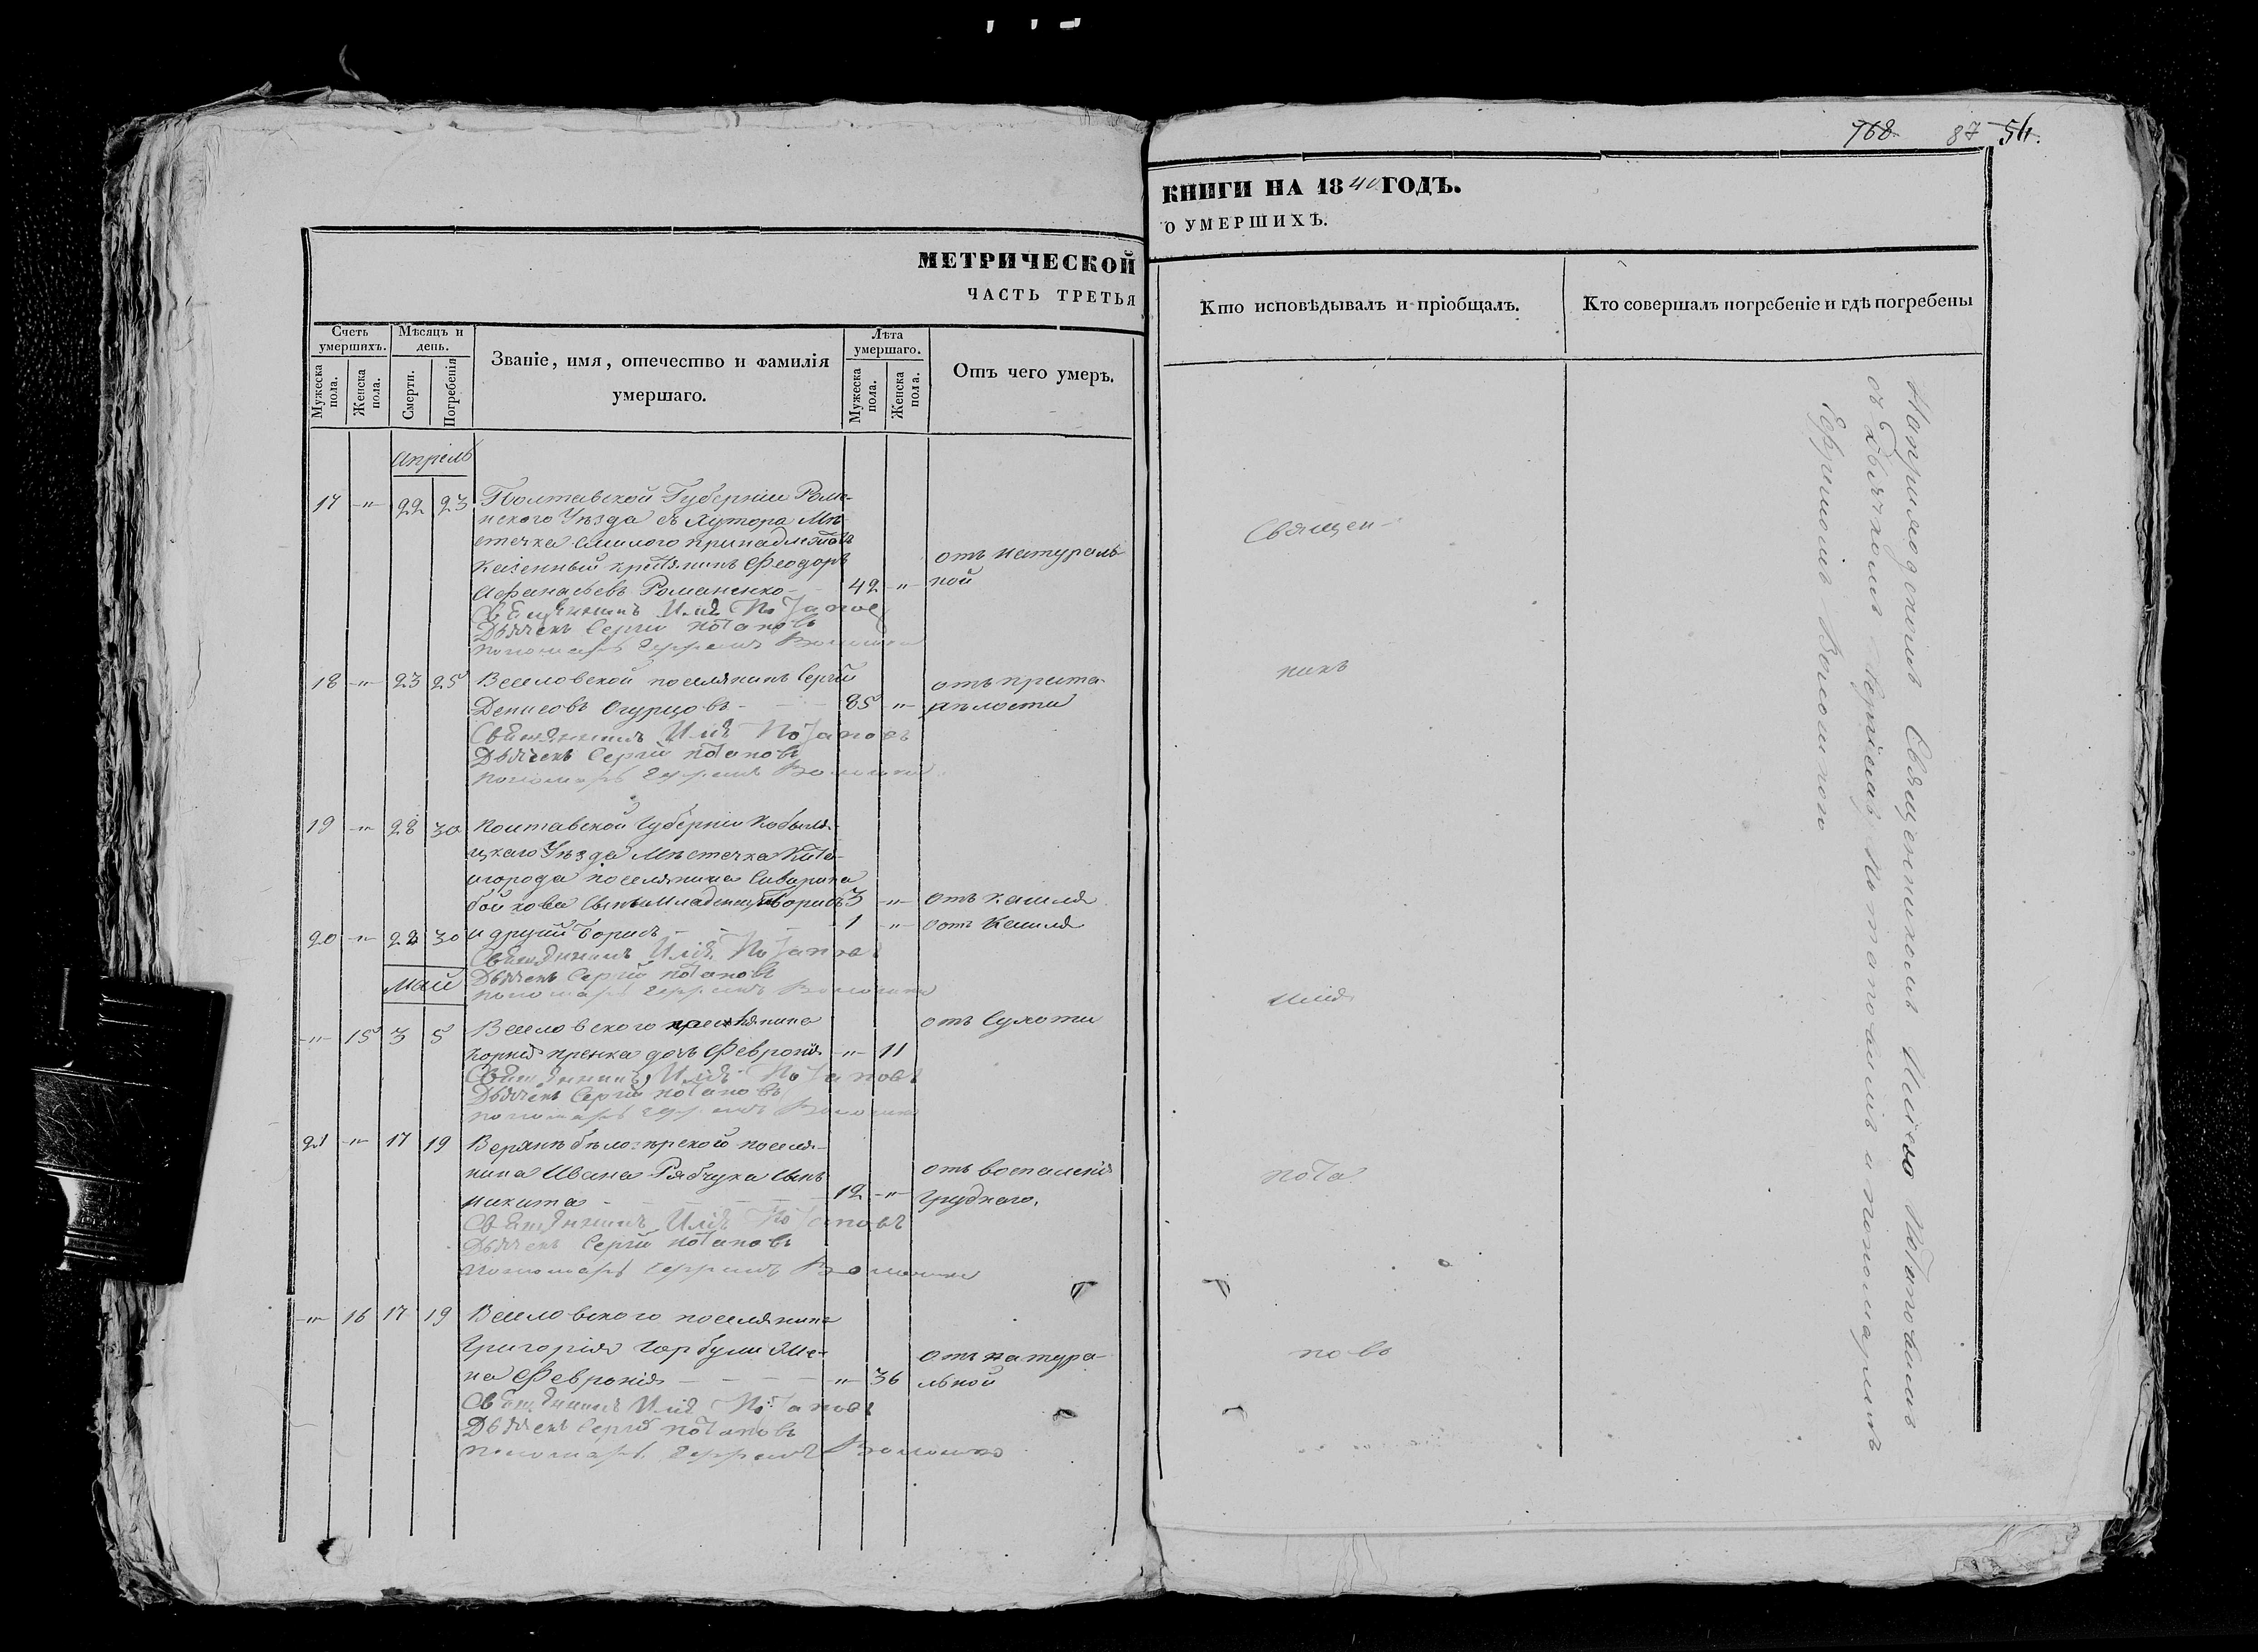 768 87 54.
МЕТРИЧЕСКОЙ
ЧАСТЬ ТРЕТЬЯ
Счетъ умершихъ.
Мужеска пола.
Женска пола.
Мѣсяцъ и день.
Смерти.
Погребенія
Званіе, имя, отечество и фамилія
умершаго.
Лѣта умершаго.
Мужеска пола.
Женска пола.
Отъ чего умеръ.
Апрель
17 -"- 22 23 Полтавской Губерніи Роме-
нского Уѣзда съ Хутора Мѣ-
стечка
казенный Феодоръ отъ натураль
Афанасьевъ Романенко 42 -"- ной
Священникъ Илія Потаповъ
Дьячекъ Сергій Потаповъ
пономарь Ефремъ
18 -"- 23 25 Веселовской поселянинъ Сергій отъ преста-
Денисовъ Огурцовъ 85 -"- рѣлости
Священникъ Илія Потаповъ
Дьячекъ Сергій Потаповъ
пономарь Ефремъ
19 -"- 28 30 Полтавской Губерніи Кобыля-
цкаго Уѣзда Мѣстечка Ките-
игорода поселянина
сынъ младенецъ Борисъ 3 -"- отъ кашля
20 -"- 28 30 и другій Борисъ 1 -"- отъ кашля
Священникъ Илія Потаповъ
Май Дьячекъ Сергій Потаповъ
пономарь Ефремъ
-"- 15 3 5 Веселовского поселянина отъ Сухоти
Корнія дочь Февронія -"- 11
Священникъ Илія Потаповъ
Дьячекъ Сергій Потаповъ
пономарь Ефремъ
21 -"- 17 19 поселя-
нина Ивана Рябчука сынъ отъ воспаленія
Никита 12 -"- груднаго.
Священникъ Илія Потаповъ
Дьячекъ Сергій Потаповъ
пономарь Ефремъ
-"- 16 17 19 Веселовского поселянина
Григорія Горбули же- отъ натура-
на Февронія -"- 36 льной
Священникъ Илія Потаповъ
Дьячекъ Сергій Потаповъ
пономарь Ефремъ
КНИГИ НА 1840 ГОДЪ.
О УМЕРШИХЪ.
Кто исповѣдывалъ и пріобщалъ.
Кто совершалъ погребеніе и гдѣ погребены
Священ-
никъ
Илія
Пота
повъ
Священникомъ Иліею Потаповымъ
съ Дьячкомъ Сергіемъ Потаповымъ и пономаремъ
Ефримомъ